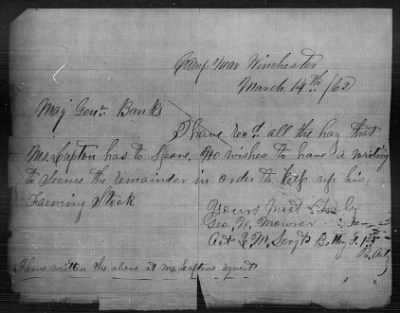 Camp Near Winchester
March 14th /62
Maj Genr. Banks
I have recd. all the hay that
Mr. Lupton has to spare. He wishes to have a writing
to secure the remainder in order to keep up his
Farming Stock
Yours Most
Geo. W. Mowrer
Act Q. M. Sergt Batty F. Pa
I have written the above at Mr Luptons